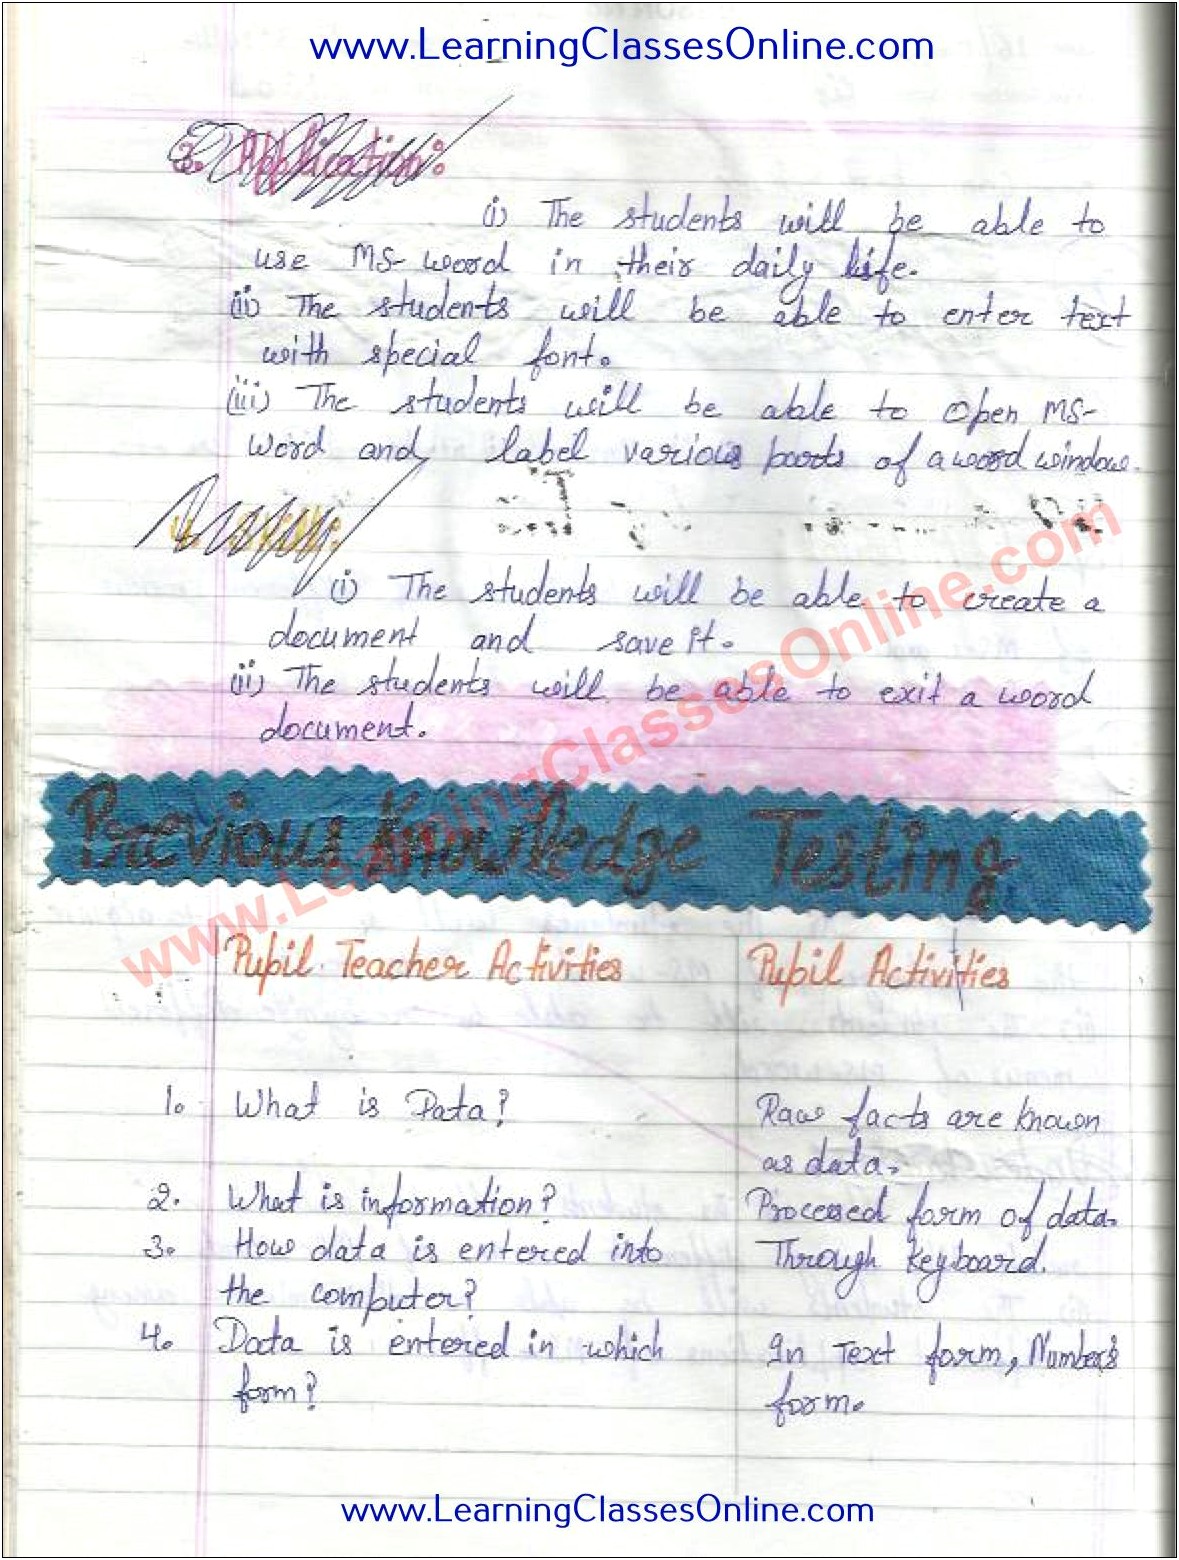 www.LearningClassesOnline.com
3. Application:
(i) The students will be able to
use MS-Word in their daily life.
(ii) The students will be able to enter text
with special font.
(iii) The students will be able to open MS-
Word and label various parts of a word window.
(i) The students will be able to create a
document and save it.
(ii) The students will be able to exit a word
document.
Previous Knowledge Testing
www.LearningClassesOnline.com
Pupil Teacher Activities Pupil Activities
1. What is Data? Raw facts are known
as data.
2. What is information? Processed form of data.
3. How data is entered into Through Keyboard.
the computer?
4. Data is entered in which In Text form, Number's
form? form.
www.LearningClassesOnline.com